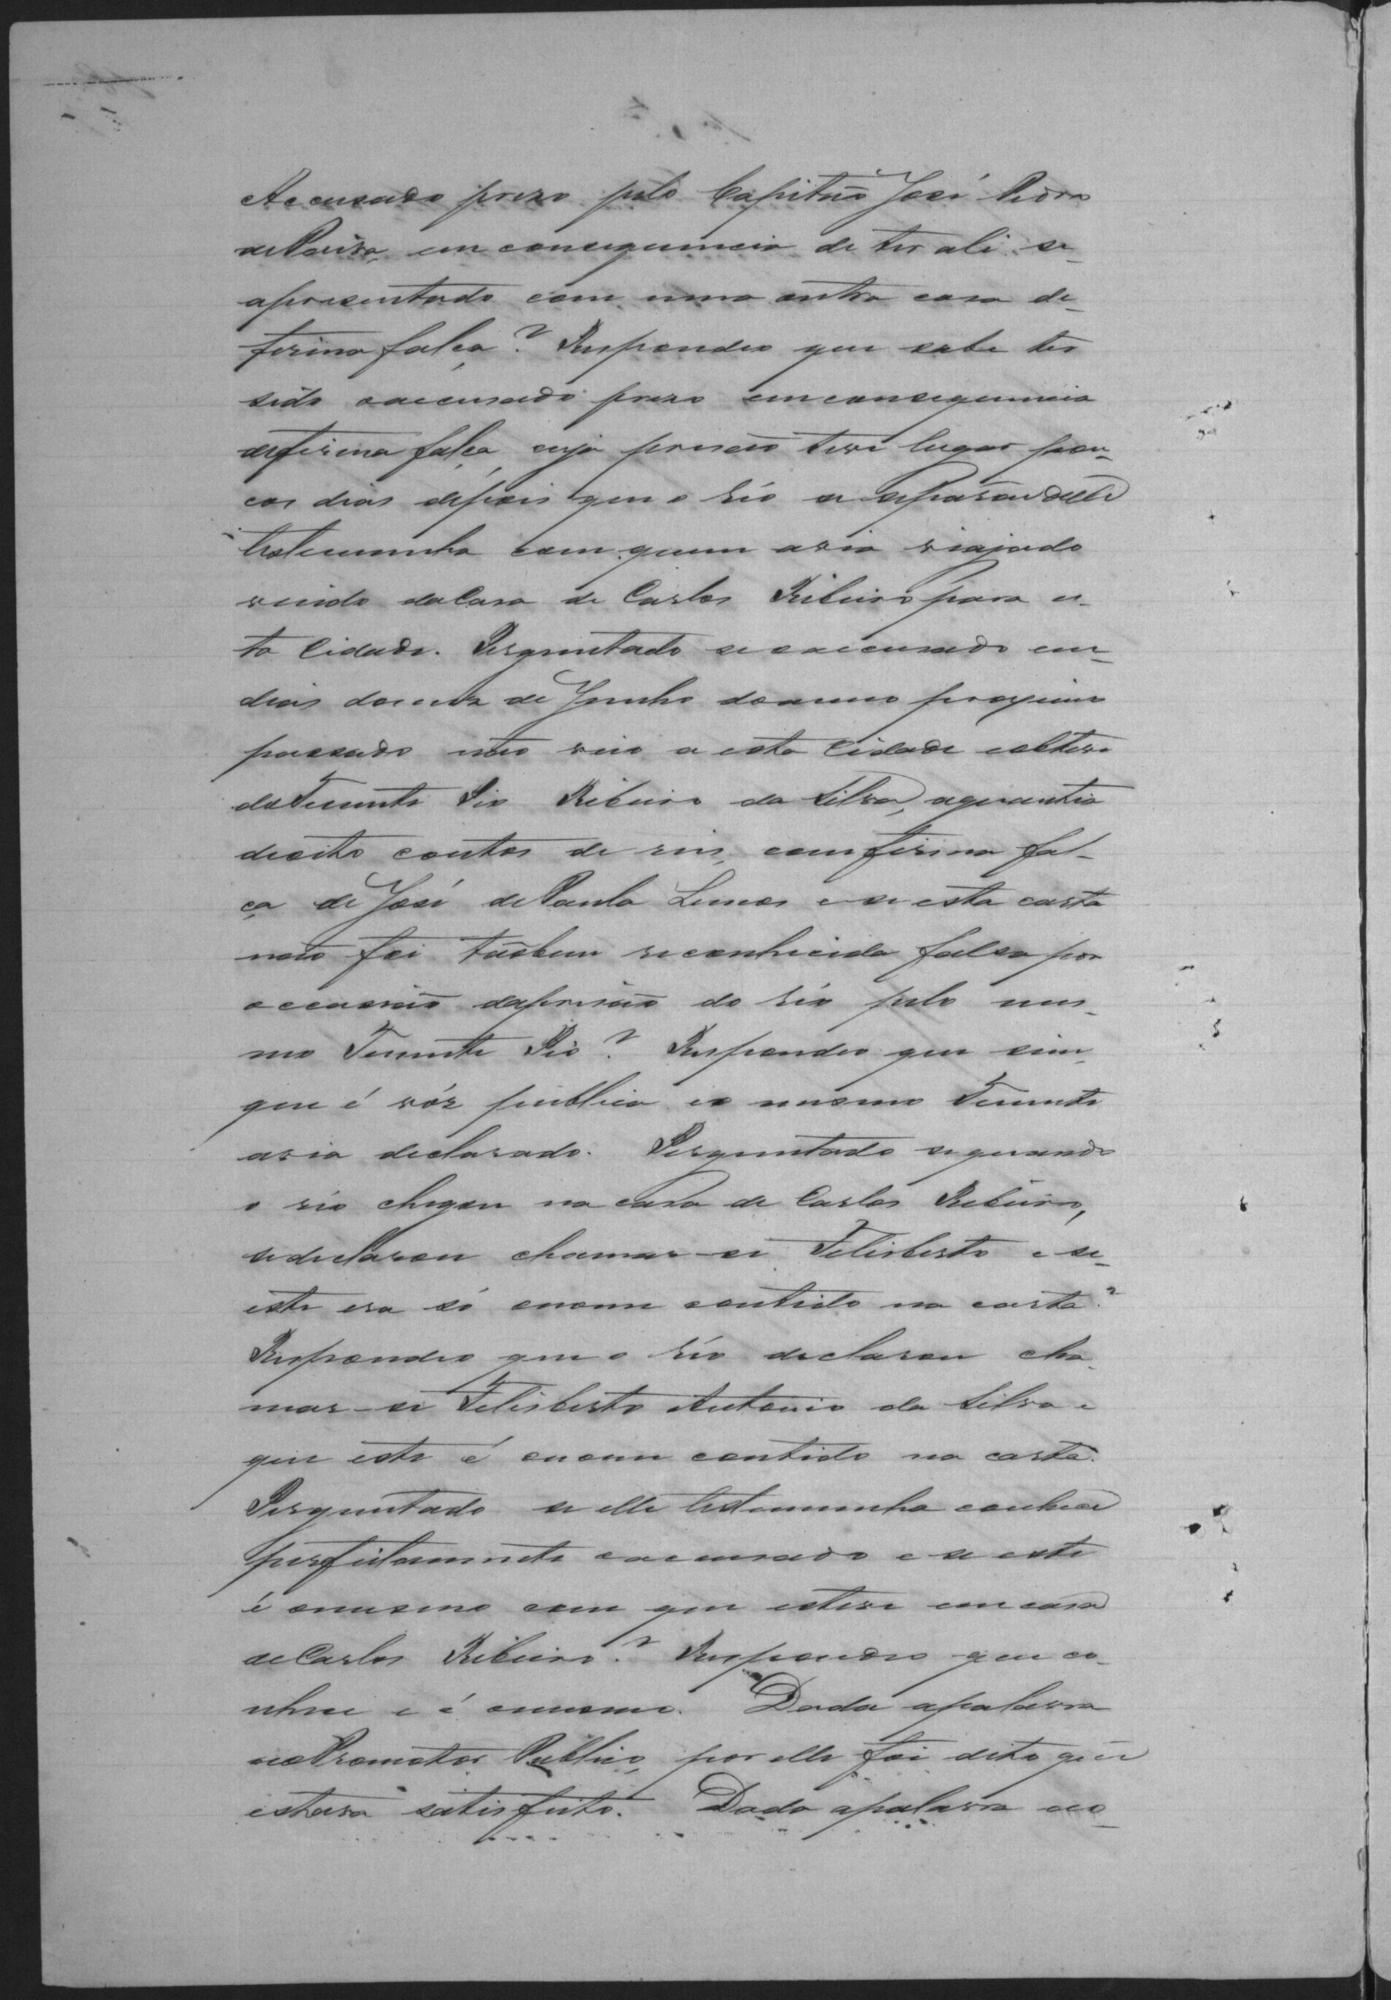 Accusado prezo pelo Capitaõ José Pedro
de Paiva, em consequencia de ter ali se-
apresentado com uma outra casa de-
firma falça? Respondeo que sabe ter
sido oaccusado prezo emconsequencia
defirma falça, cuja prisaõ teve lugar pou-
cos dias depois que o réo se separou delle
testemunha com quem avia viajado
vindo daCasa de Carlos Ribeiro para es-
ta Cidade. Perguntado seoaccusado em-
dias domez de Junho doanno proximo
passado não veio a esta Cidade eobteve
doTenente Pio Ribeiro da Silva, aquantia
deoito contos de reis, comfirma fal-
ça de José dePaula Lemos e se esta carta
naõ foi taõbem reconhecida falsa por
occasiaõ daprisaõ do réo pelo mes-
mo Tenente Pio? Respondeo que sim-
que é vóz publica eo mesmo Tenente
avia declarado. Perguntado sequando
o réo chegou na casa de Carlos Ribeiro,
sedeclarou chamar-se Felisberto e se-
este era só onome contido na carta?
Respondeo que o réo declarou cha-
mar-se Felisberto Antonio da Silva e
que este é onome contido na carta.
Perguntado se elle testemunha conhece
perfeitamente oaccusado e se este
é omesmo com que esteve em casa
deCarlos Ribeiro? Respondeo que co-
nhece e é omesmo. Dada apalavra
aoPromotor Publico, por elle foi dito que
estava satisfeito. Dada apalavra ao-